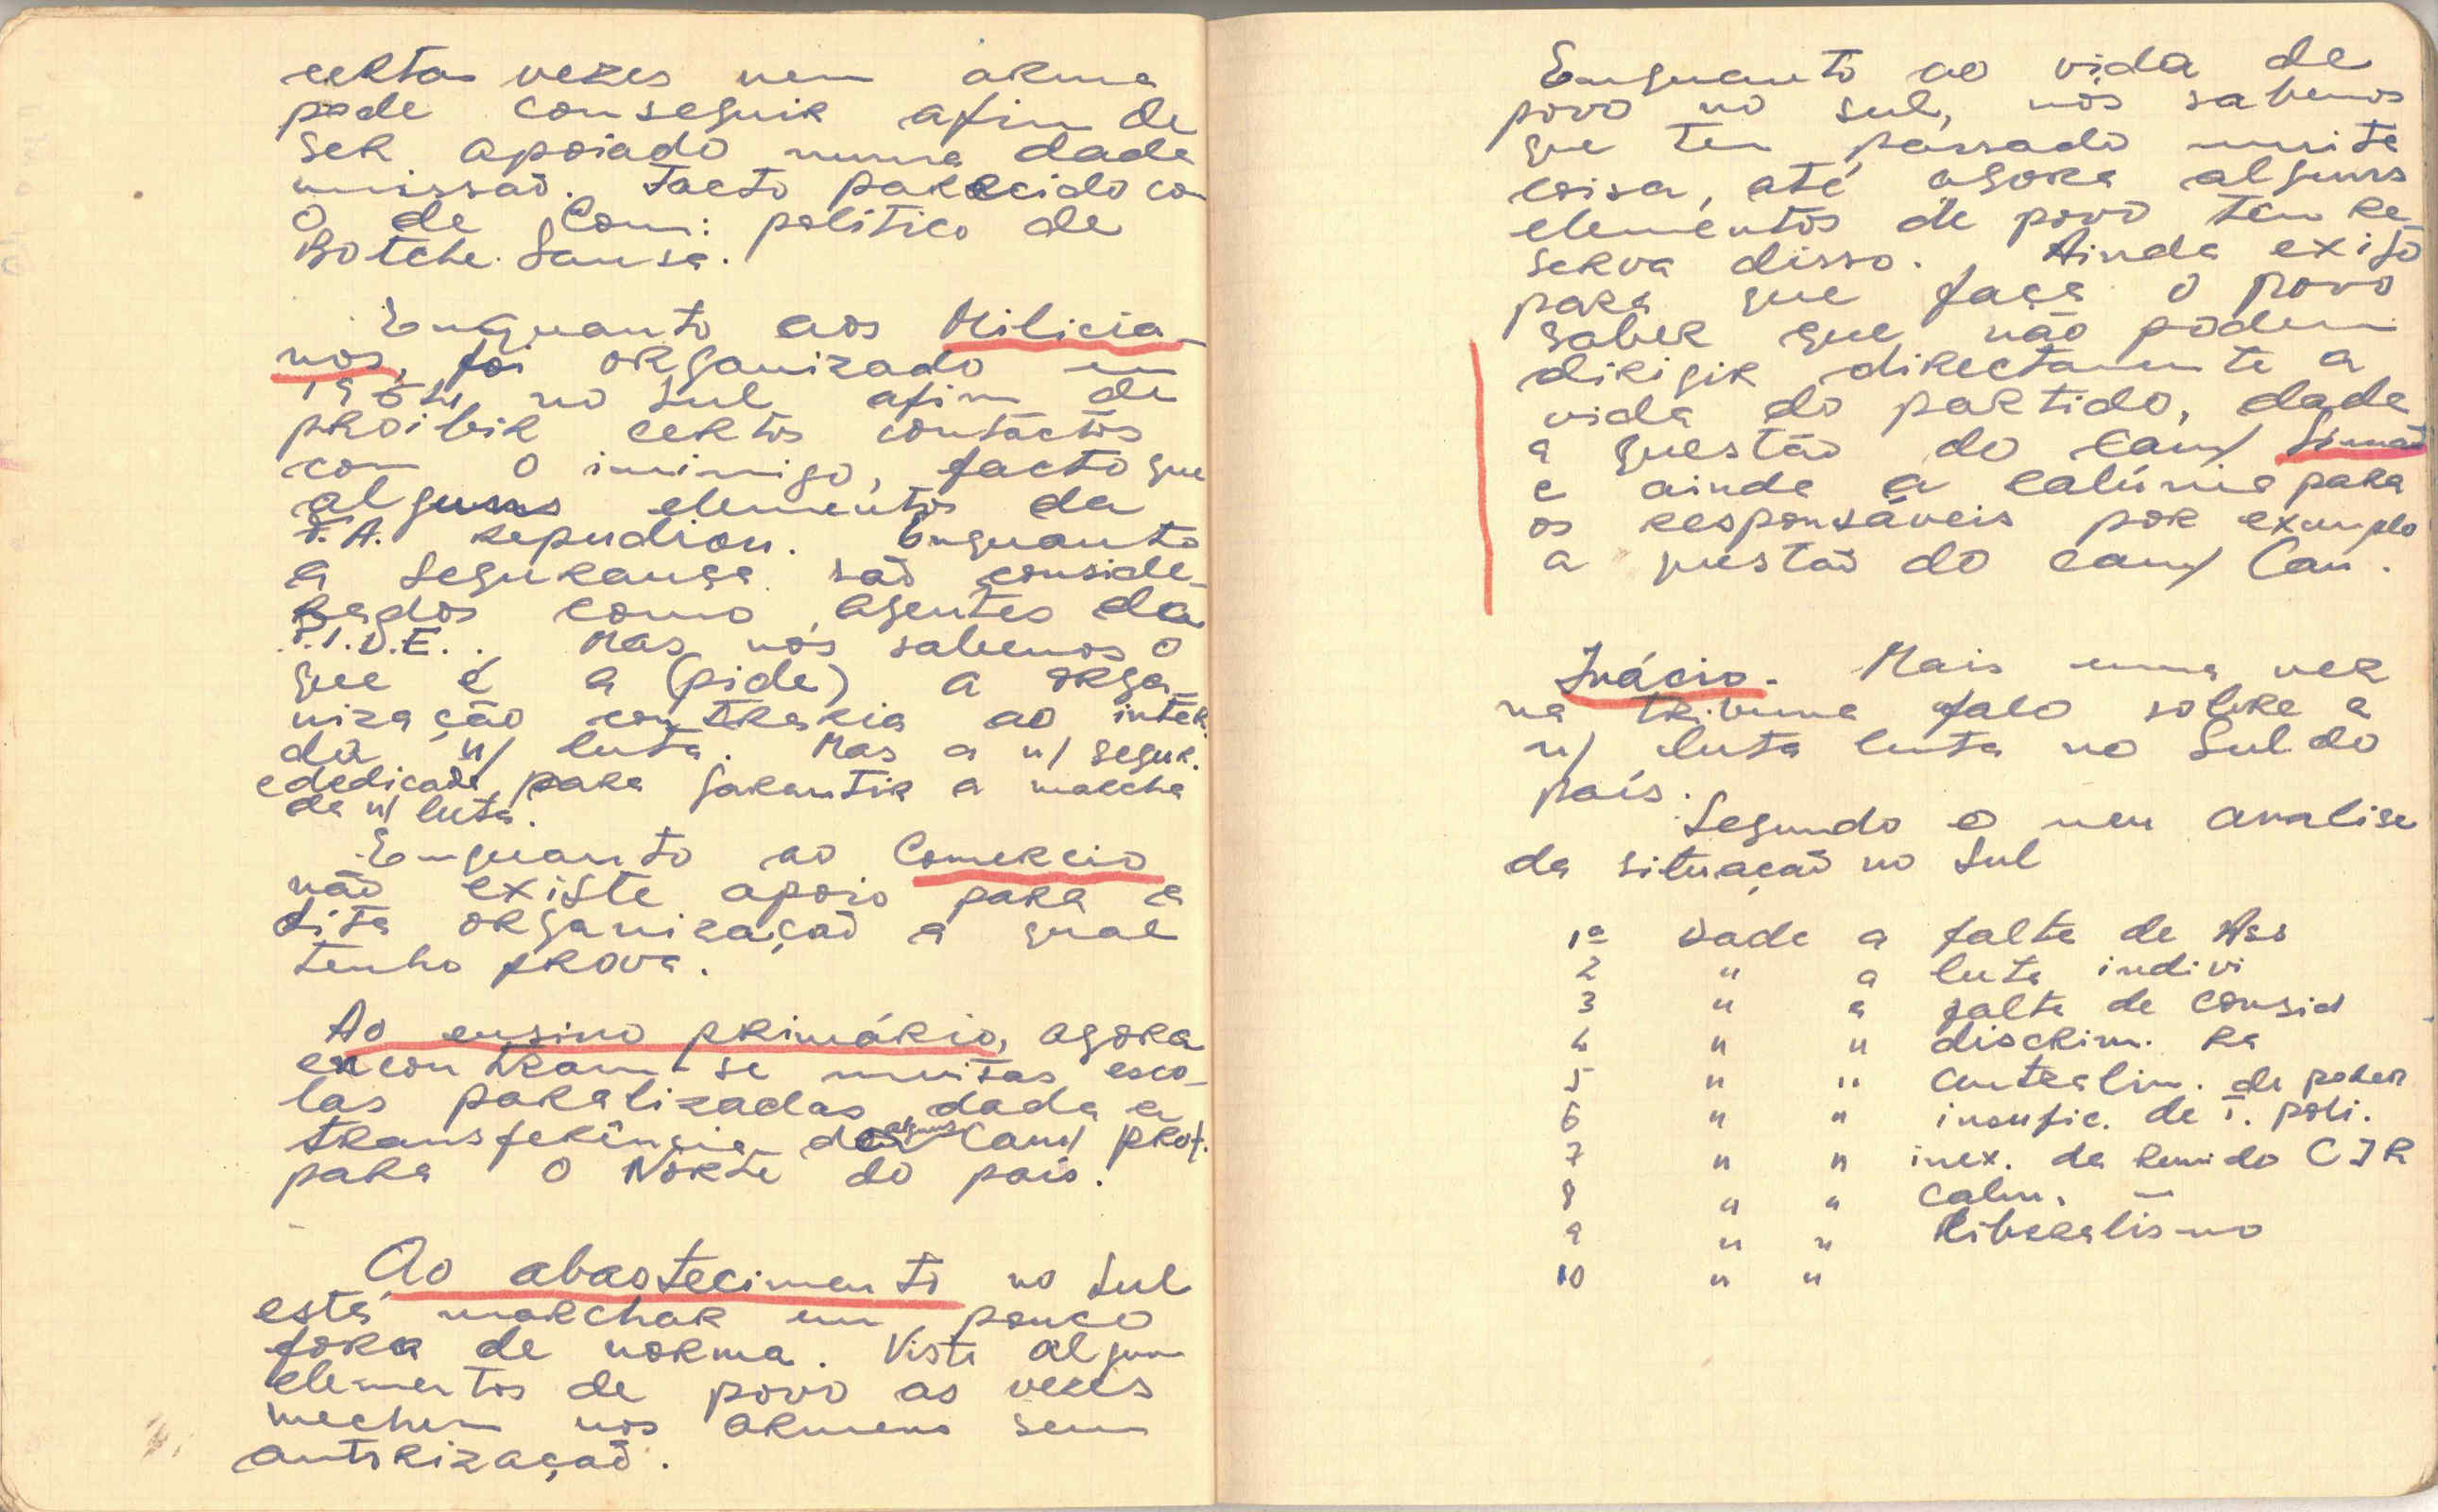 certas vezes nem arma
pode conseguir afim de
ser apoiado numa dada
missão. Facto parecido com
o de Com: político de
Botche Sansa.
Enquanto aos Milicia-
nos, foi organizado em
1964, no Sul afim de
proibir certos contactos
com o inimigo, facto que
alguns elementos da
F.A. repudiou. Enquanto
a Segurança são conside-
rados como agentes da
P.I.D.E.. Mas nós sabemos o
que é a (pide) a orga-
nização contraria ao inter.
da n/ luta. Mas a n/ segur.
é dedicada para garantir a marcha
da n/ luta.
Enquanto ao Comercio
não existe apoio para a
dita organização a qual
tenho prova.
Ao ensino primário, agora
encontram-se muitas esco-
las paralizadas, dada a
transferência de alguns cam/ prof.
para o Norte do país.
Ao abastecimento no Sul
está marchar um pouco
fora de norma. Visto algum
elementos de povo as vezes
mechem nos armens sem
autorização.
Enquanto ao vida de
povo no sul, nós sabemos
que tem passado muita
coisa, até agora alguns
elementos de povo tem re-
serva disso. Ainda exijo
para que faça o povo
saber que não podem
dirigir directamente a
vida do partido, dada
a questão do cam/ Simão
e ainda a calúnia para
os responsáveis por exemplo
a questão do cam/ Can.
Inácio. Mais uma vez
na tribuna falo sobre a
n/ luta luta no Sul do
país.
Segundo o meu analise
da situação no Sul
1º Dade a falta de Ass
2 " a luta indivi
3 " a falta de consid
4 " " discrim. ra
5 " " centralim. de poder
6 " " insufic. de t. poli.
7 " " inex. da reunido CIR
8 " " calun. —
9 " " Liberalismo
10 " "